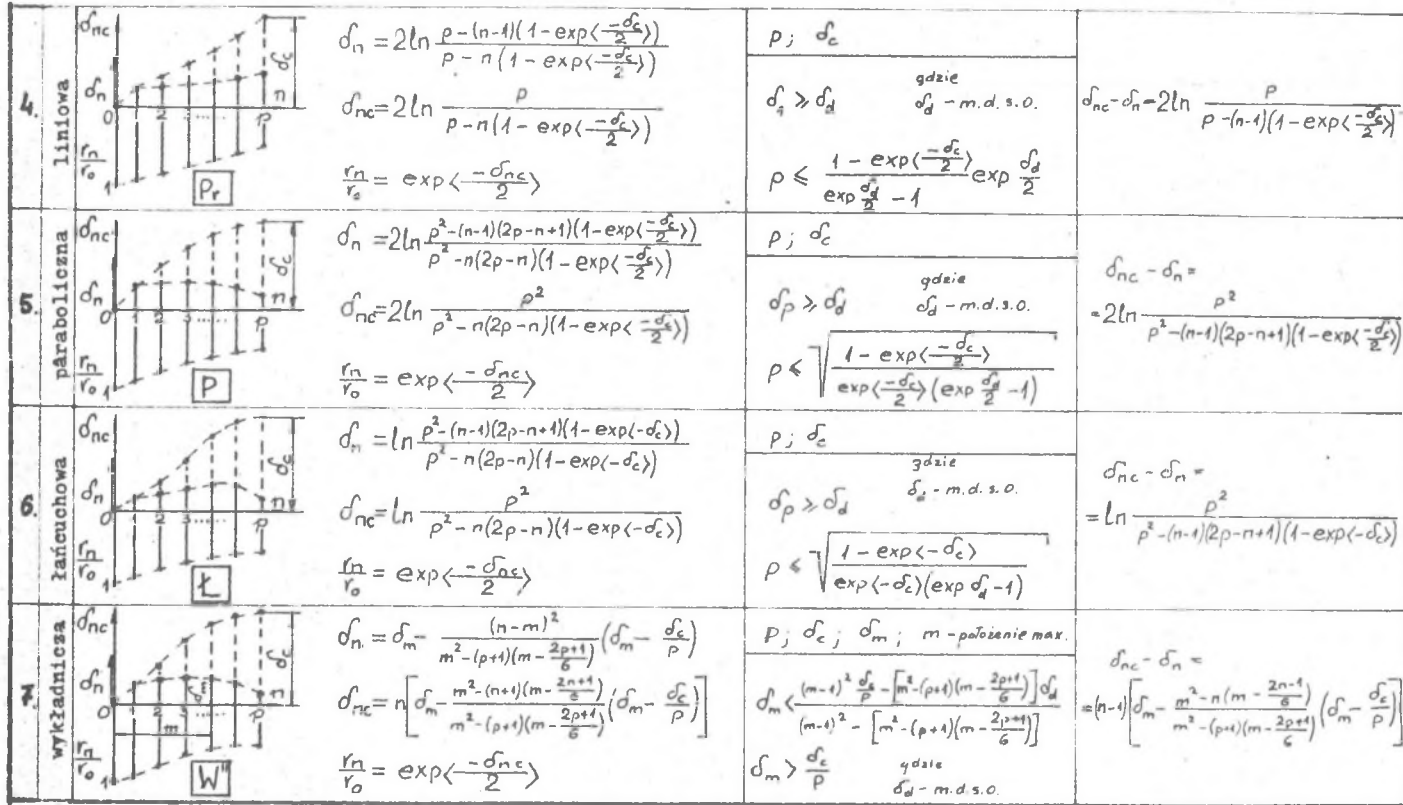 4.
liniowa
δnc
δn
0 1 2 3 ...... p n
δc
rn/r0
1
Pr
δn = 2ln (p-(n-1)(1-exp<-δc/2>))/(p-n(1-exp<-δc/2>))
δnc = 2ln p/(p-n(1-exp<-δc/2>))
rn/r0 = exp<-δnc/2>
p; δc
gdzie
δ1 ⩾ δd δd - m.d.s.o.
p ⩽ (1-exp<-δc/2>)/(exp δd/2 - 1) exp δd/2
δnc-δn=2ln p/(p-(n-1)(1-exp<-δc/2>))
5.
paraboliczna
δnc
δn
0 1 2 3 ...... p n
δc
rn/r0
1
P
δn = 2ln (p²-(n-1)(2p-n+1)(1-exp<-δc/2>))/(p²-n(2p-n)(1-exp<-δc/2>))
δnc = 2ln p²/(p²-n(2p-n)(1-exp<-δc/2>))
rn/r0 = exp<-δnc/2>
p; δc
gdzie
δp ⩾ δd δd - m.d.s.o.
p ⩽ √((1-exp<-δc/2>)/(exp<-δc/2>(exp δd/2 - 1)))
δnc - δn =
= 2ln p²/(p²-(n-1)(2p-n+1)(1-exp<-δc/2>))
6.
łańcuchowa
δnc
δn
0 1 2 3 ...... p n
δc
rn/r0
1
Ł
δn = ln (p²-(n-1)(2p-n+1)(1-exp<-δc>))/(p²-n(2p-n)(1-exp<-δc>))
δnc = ln p²/(p²-n(2p-n)(1-exp<-δc>))
rn/r0 = exp<-δnc/2>
p; δc
gdzie
δp ⩾ δd δd - m.d.s.o.
p ⩽ √((1-exp<-δc>)/(exp<-δc>(exp δd-1)))
δnc - δn =
= ln p²/(p²-(n-1)(2p-n+1)(1-exp<-δc>))
7.
wykładnicza
δnc
δn
0 1 2 3 p n
δm
m
δc
rn/r0
1
W"
δn = δm - (n-m)²/(m²-(p+1)(m-(2p+1)/6)) (δm - δc/p)
δnc = n[δm - (m²-(n+1)(m-(2n+1)/6))/(m²-(p+1)(m-(2p+1)/6)) (δm - δc/p)]
rn/r0 = exp<-δnc/2>
p; δc; δm; m - położenie max.
δm < ((m-1)² δc/p - [m²-(p+1)(m-(2p+1)/6)]δd)/((m-1)² - [m²-(p+1)(m-(2p+1)/6)])
δm > δc/p gdzie
δd - m.d.s.o.
δnc - δn =
= (n-1)[δm - (m²-n(m-(2n-1)/6))/(m²-(p+1)(m-(2p+1)/6)) (δm - δc/p)]